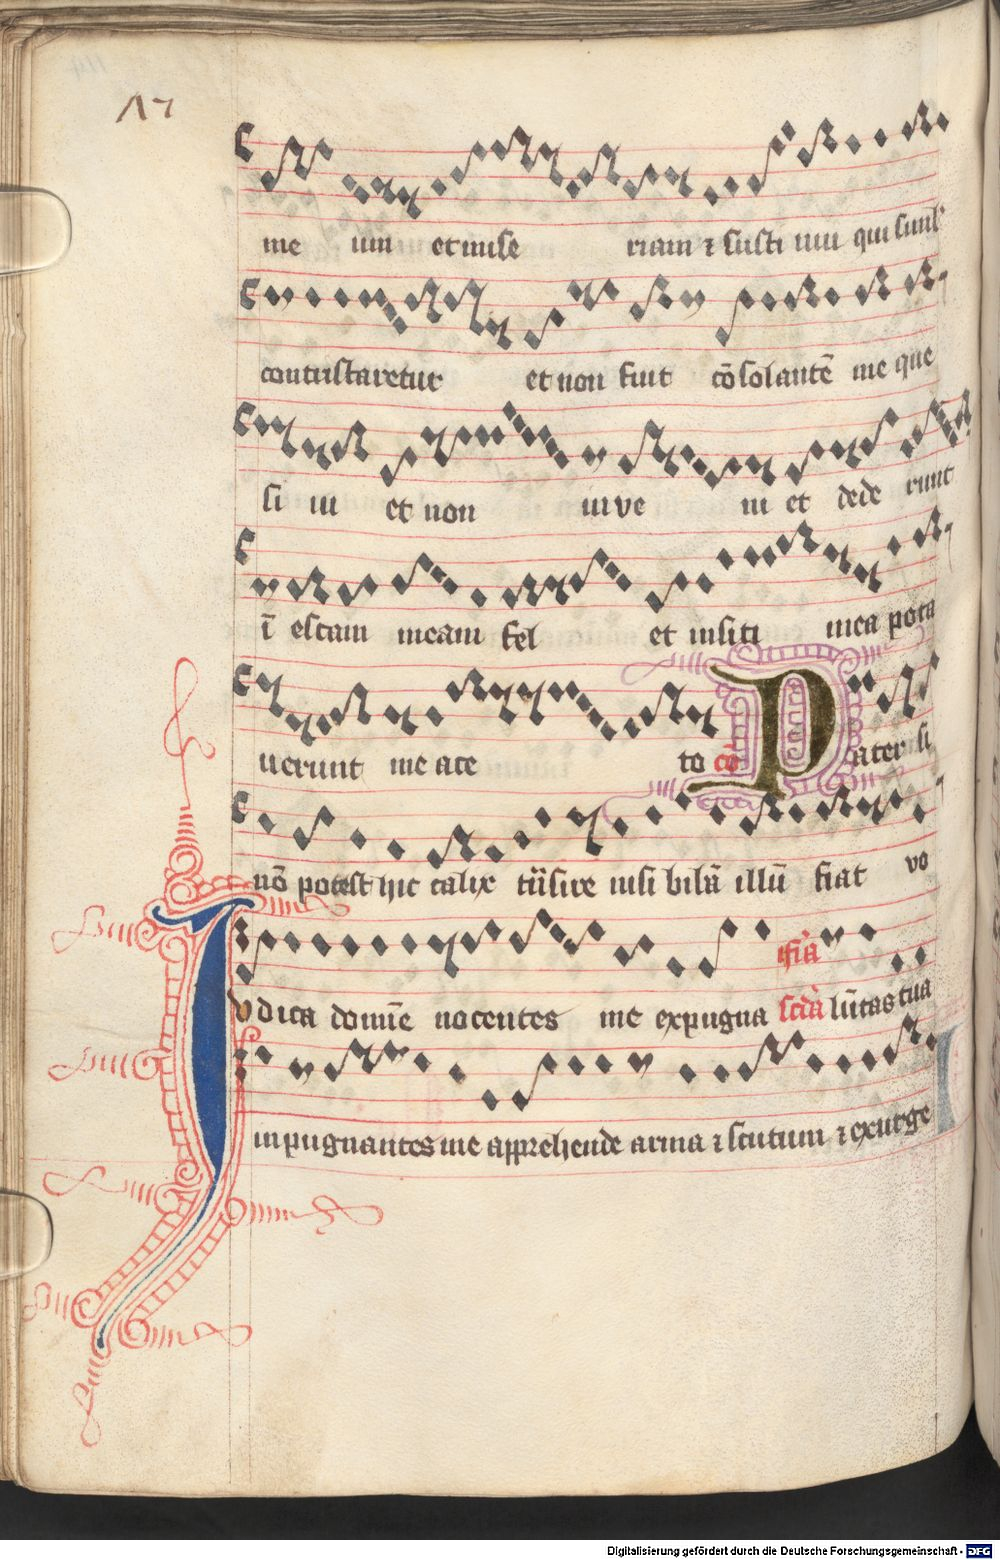 me um et mise riam ⁊ susti nui qui simul
contristaretur et non fuit cōsolantē me que
si ui et non inve ni et dede runt
ī escam meam fel et in siti mea pota
uerunt me ace to cō Pater si
nō potest hic calix trāsire nisi bibā illū fiat vo
Iudica domīe nocentes me expugna lūtas tua
inpugnantes me apprehende arma ⁊ scutum ⁊ exurge
Digitalisierung gefördert durch die Deutsche Forschungsgemeinschaft - DFG